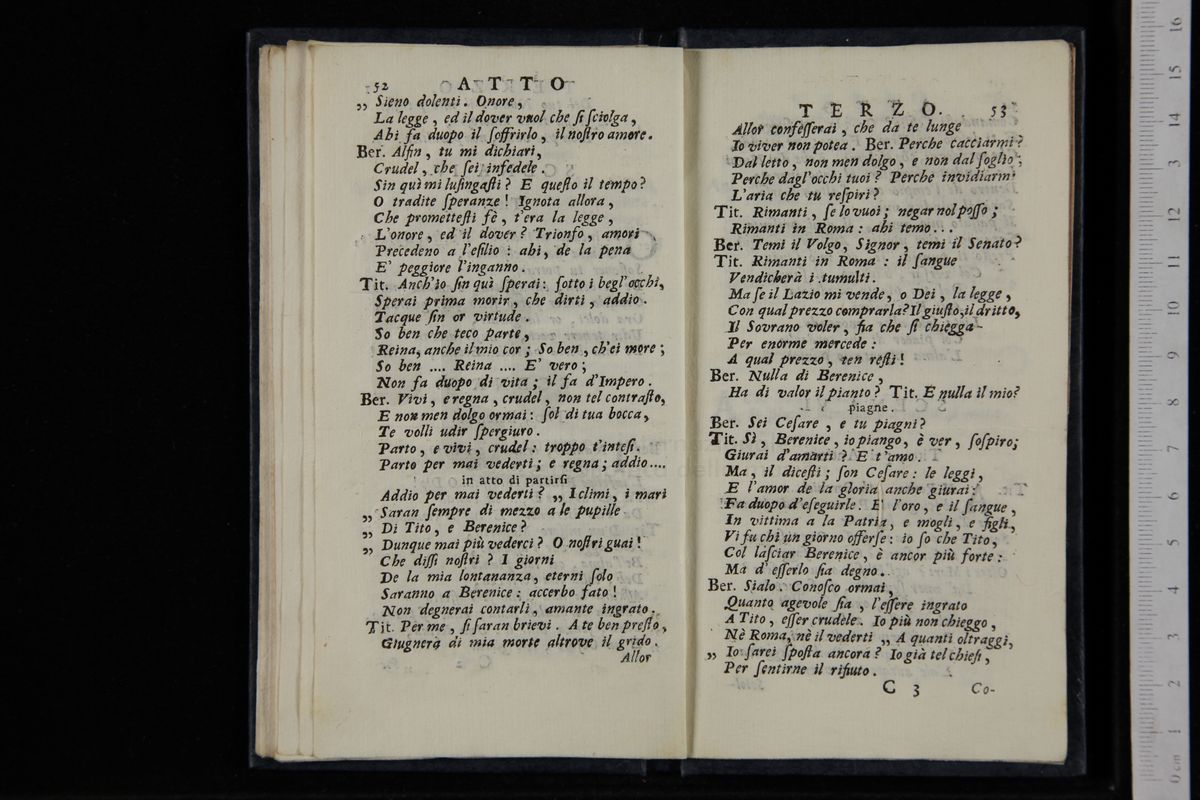 52 ATTO
„ Sieno dolenti. Onore,
La legge, ed il dover vuol che ſi ſciolga,
Ahi fa duopo il ſoffrirlo, il noſtro amore.
Ber. Alfin, tu mi dichiari,
Crudel, che ſei infedele.
Sin quì mi luſingaſti? E queſto il tempo?
O tradite ſperanze! Ignota allora,
Che prometteſti fè, t'era la legge,
L'onore, ed il dover? Trionfo, amori
Precedeno a l'eſilio: ahi, de la pena
E' peggiore l'inganno.
Tit. Anch'io ſin quì ſperai: ſotto i begl'occhi,
Sperai prima morir, che dirti, addio.
Tacque ſin or virtude.
So ben che teco parte,
Reina, anche il mio cor; So ben, ch'ei more;
So ben .... Reina .... E' vero;
Non fa duopo di vita; il fa d'Impero.
Ber. Vivi, e regna, crudel, non tel contraſto,
E non men dolgo ormai: ſol di tua bocca,
Te volli udir ſpergiuro.
Parto, e vivi, crudel: troppo t'inteſi.
Parto per mai vederti; e regna; addio....
in atto di partirſi
Addio per mai vederti? „ I climi, i mari
„ Saran ſempre di mezzo a le pupille
„ Di Tito, e Berenice?
„ Dunque mai più vederci? O noſtri guai!
Che diſſi noſtri? I giorni
De la mia lontananza, eterni ſolo
Saranno a Berenice: accerbo fato!
Non degnerai contarli, amante ingrato.
Tit. Per me, ſi ſaran brievi. A te ben preſto,
Giugnerà di mia morte altrove il grido.
Allor
TERZO. 53
Allor confeſſerai, che da te lunge
Io viver non potea. Ber. Perche cacciarmi?
Dal letto, non men dolgo, e non dal ſoglio;
Perche dagl'occhi tuoi? Perche invidiarmi
L'aria che tu reſpiri?
Tit. Rimanti, ſe lo vuoi; negar nol poſſo;
Rimanti in Roma: ahi temo...
Ber. Temi il Volgo, Signor, temi il Senato?
Tit. Rimanti in Roma: il ſangue
Vendicherà i tumulti.
Ma ſe il Lazio mi vende, o Dei, la legge,
Con qual prezzo comprarla? Il giuſto, il dritto,
Il Sovrano voler, fia che ſi chiegga
Per enorme mercede:
A qual prezzo, ten reſti!
Ber. Nulla di Berenice,
Ha di valor il pianto? Tit. E nulla il mio?
piagne.
Ber. Sei Ceſare, e tu piagni?
Tit. Sì, Berenice, io piango, è ver, ſoſpiro;
Giurai d'amarti? E t'amo:
Ma, il diceſti; ſon Ceſare: le leggi,
E l'amor de la gloria anche giurai:
Fa duopo d'eſeguirle. E l'oro, e il ſangue,
In vittima a la Patria, e mogli, e figli,
Vi fu chi un giorno offerſe: io ſo che Tito,
Col laſciar Berenice, è ancor più forte:
Ma d'eſſerlo fia degno.
Ber. Sialo. Conoſco ormai,
Quanto agevole fia, l'eſſere ingrato
A Tito, eſſer crudele. Io più non chieggo,
Nè Roma, nè il vederti „ A quanti oltraggi,
„ Io ſarei ſpoſta ancora? Io già tel chieſi,
Per ſentirne il rifiuto.
C 3 Co-
16
15
14
13
12
11
10
9
8
7
6
5
4
3
2
1
0 cm